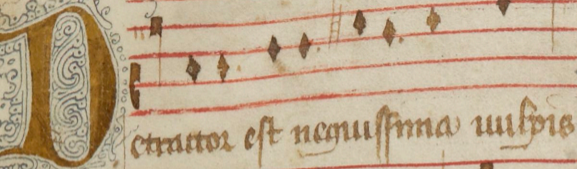 Detractor est nequissima uulpis